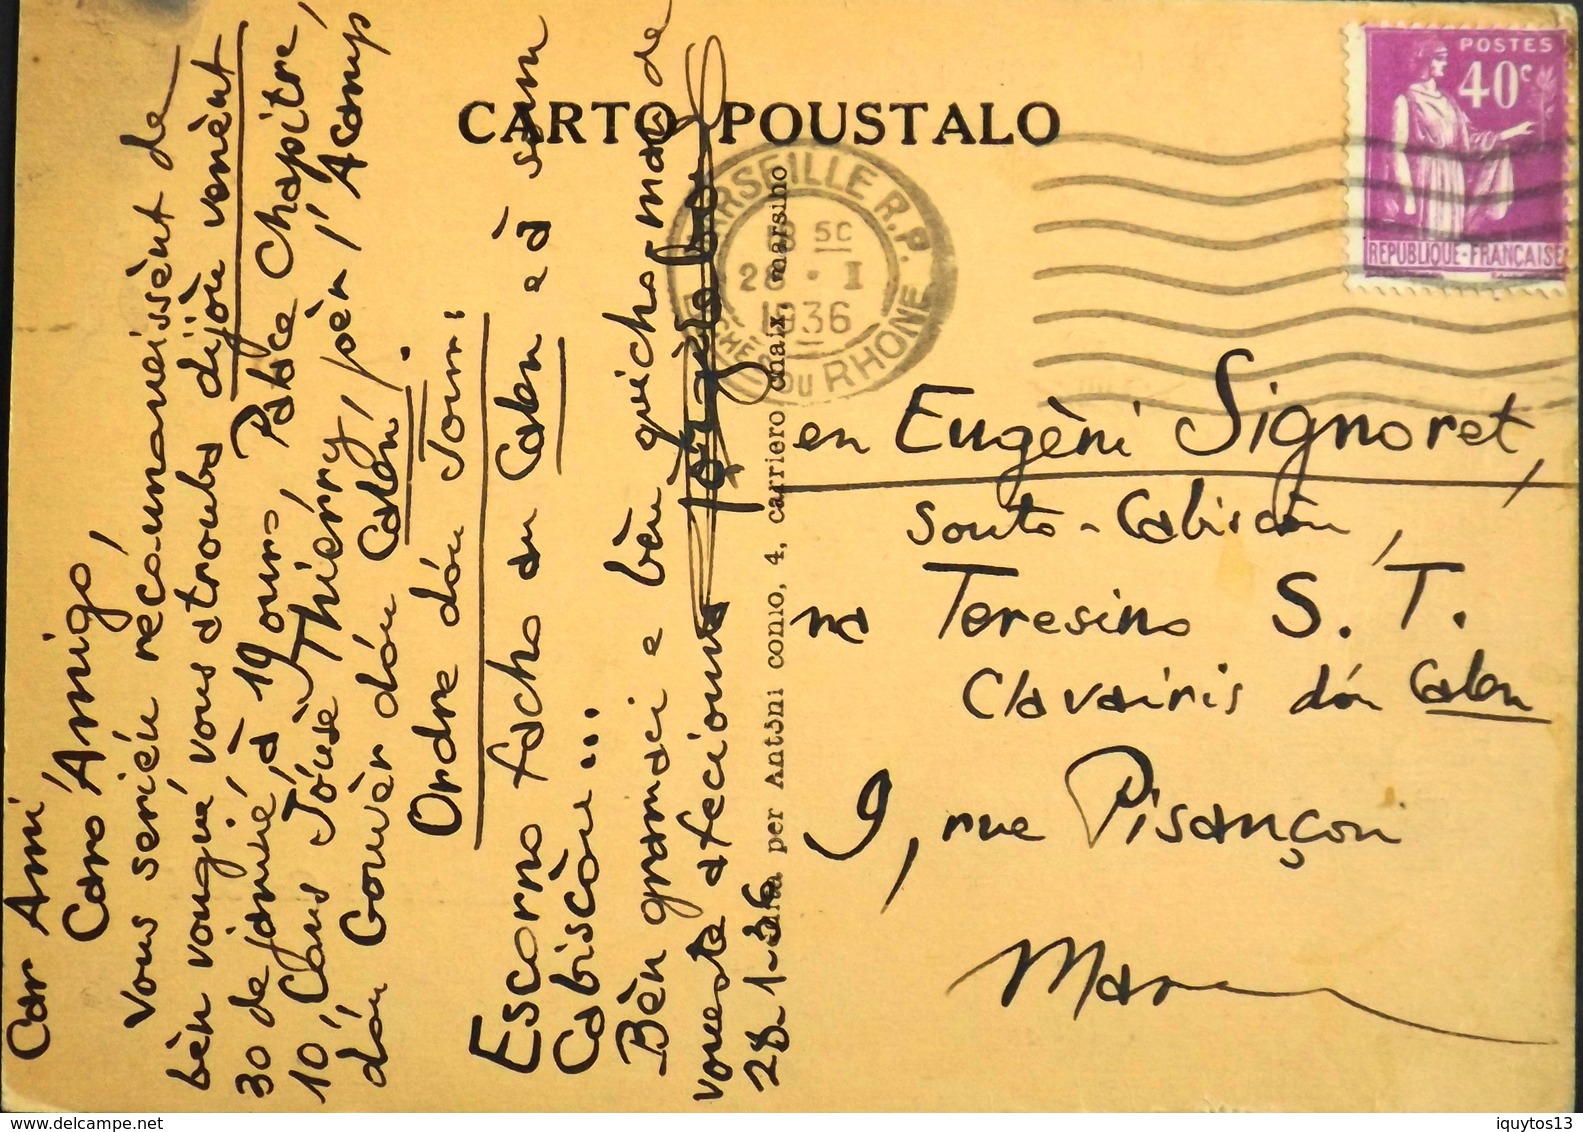 CARTO POUSTALO
POSTES
40c
REPUBLIQUE-FRANÇAISE
MARSEILLE R.P.
28 · I
1936
DU RHONE
Car Ami,
Caro Amigo,
Vous seriéu recoumaneissènt de
bèn vougué vous atrouba dijòu venènt
30 de janvié, à 19 ouro, Place Chapitre,
10, Cans Jóusè Thiérry, pèr l'Acamp
dóu Gouvèr dóu Calen.
Ordre dóu Jour:
Escorno facho au Calen e à soun
Cabiscòu...
Bèn gramaci e bèn quicho-man de
voueste afeciouna
28-1-36
per Antòni conio, 4, carriero chaix, marsiho
en Eugèni Signoret,
Souto-Cabiscòu,
na Teresino S. T.
Clavairis dóu Calen
9, rue Pisançon
Mar
delcampe.net
iquytos13